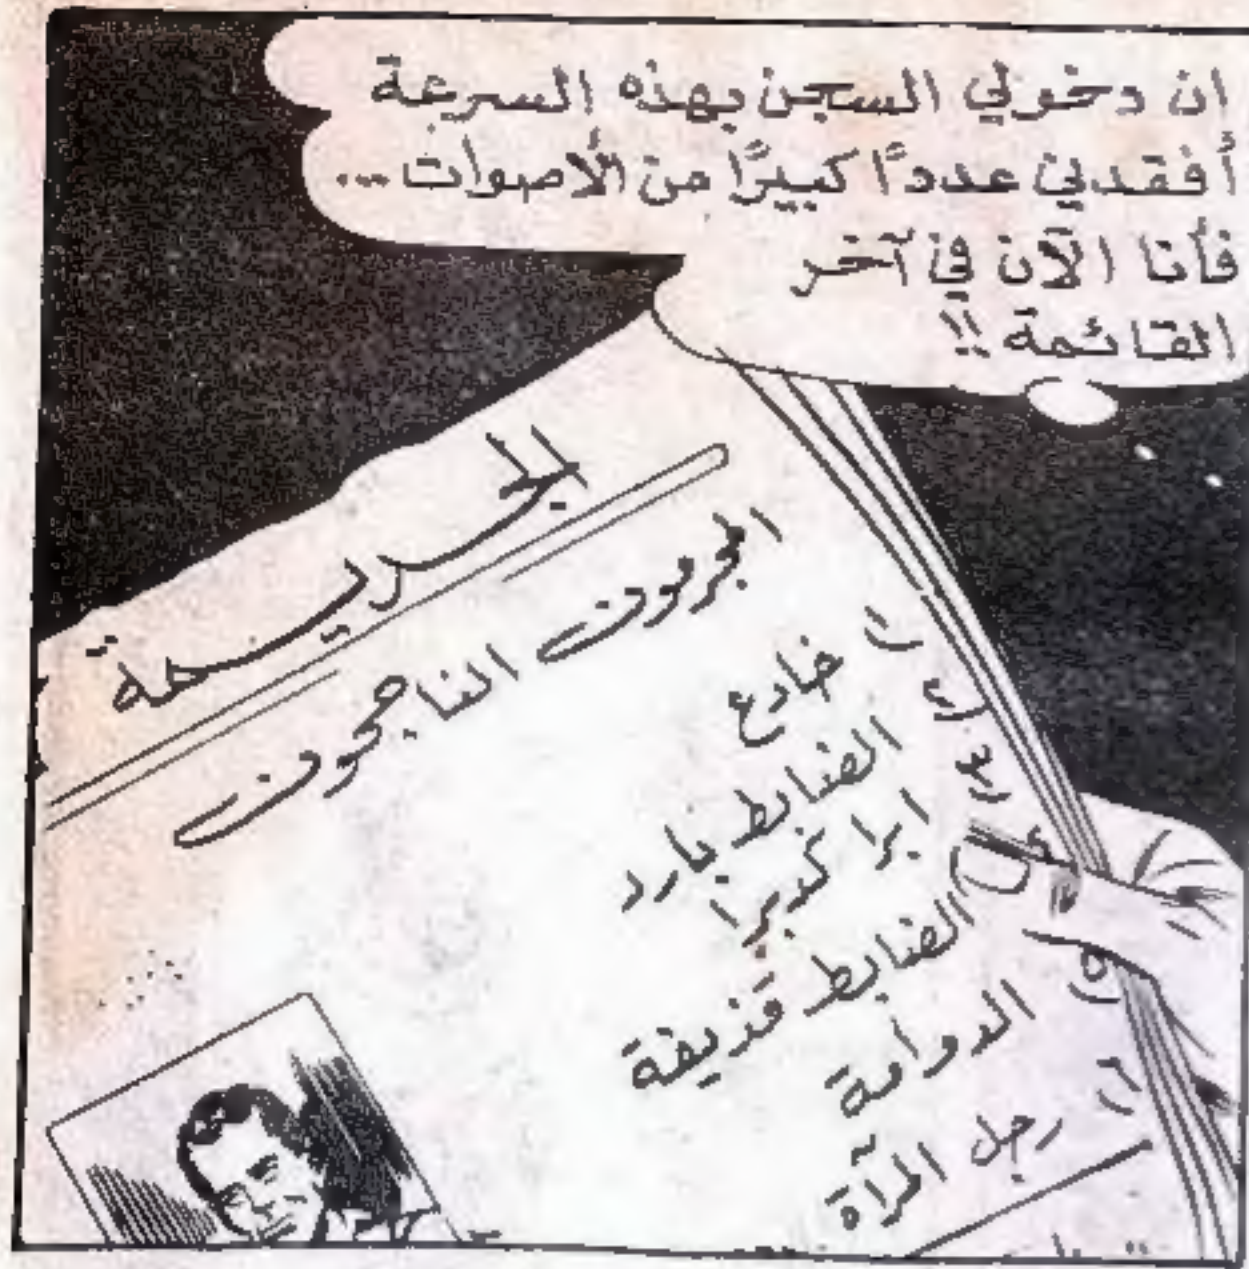 ان دخولي السجن بهذه السرعة
أفقدني عددًا كبيرًا من الأصوات ...
فأنا الآن في آخر
القائمة !!
الجريمة
المجرمون الناجحون
١) خادع
٢) الضابط بارد
٣) ابرا كدبرا
٤) الضابط قذيفة
٥) الدوامة
٦) رجل المرآة